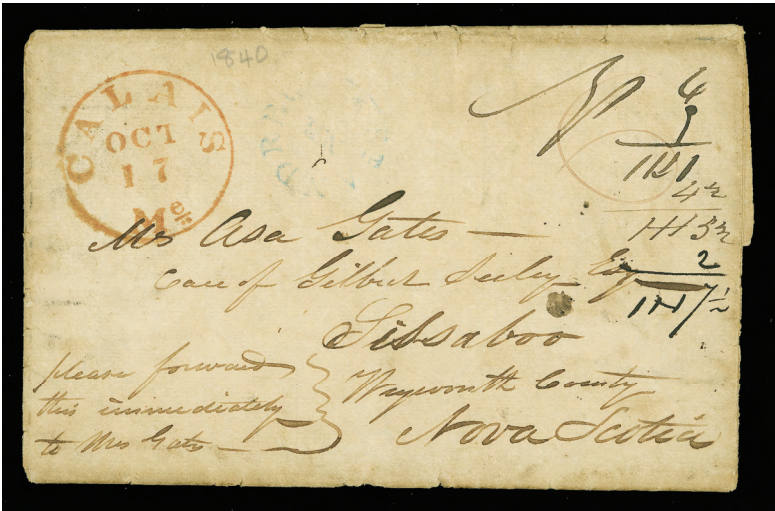 1840
CALAIS
OCT
17
Me
6
9
1H1
4½
1H 5½
2
1H 7½
Mr Asa Gates —
Care of Gilbert Seeley Esq
Sibsaboo
Weymouth County
Nova Scotia
please forward
this immediately
to Mrs Gates —